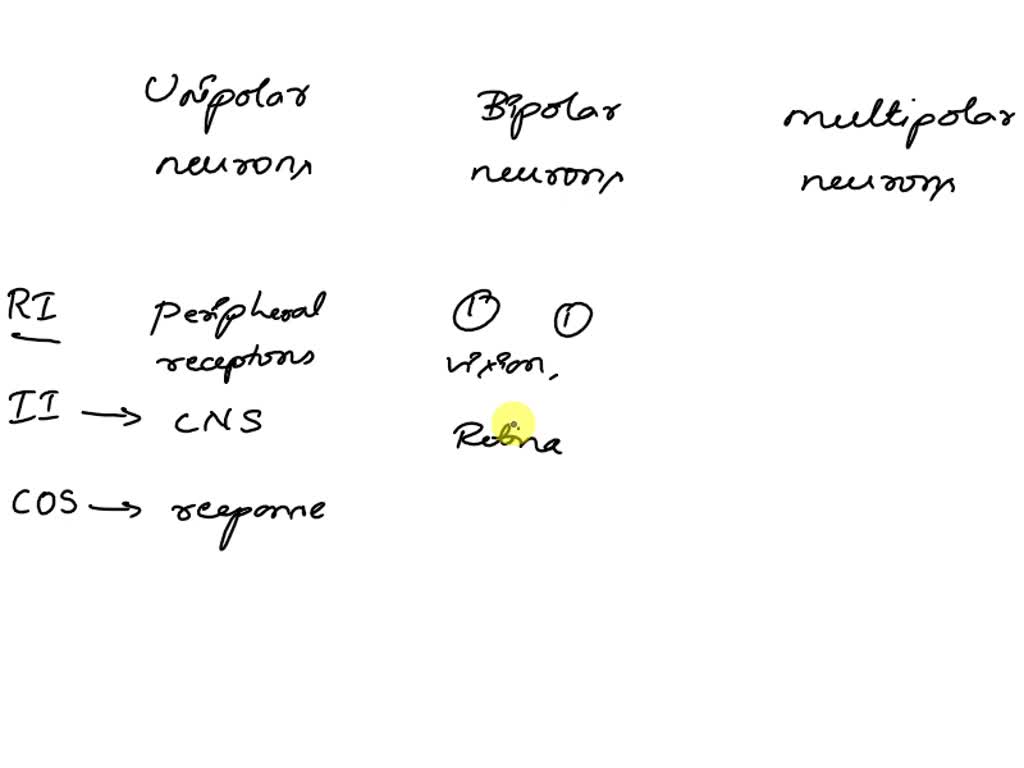 Unipolar neurons
Bipolar neurons
multipolar neurons
RI peripheral receptors
II → CNS
COS → response
① ①
vision,
Retina